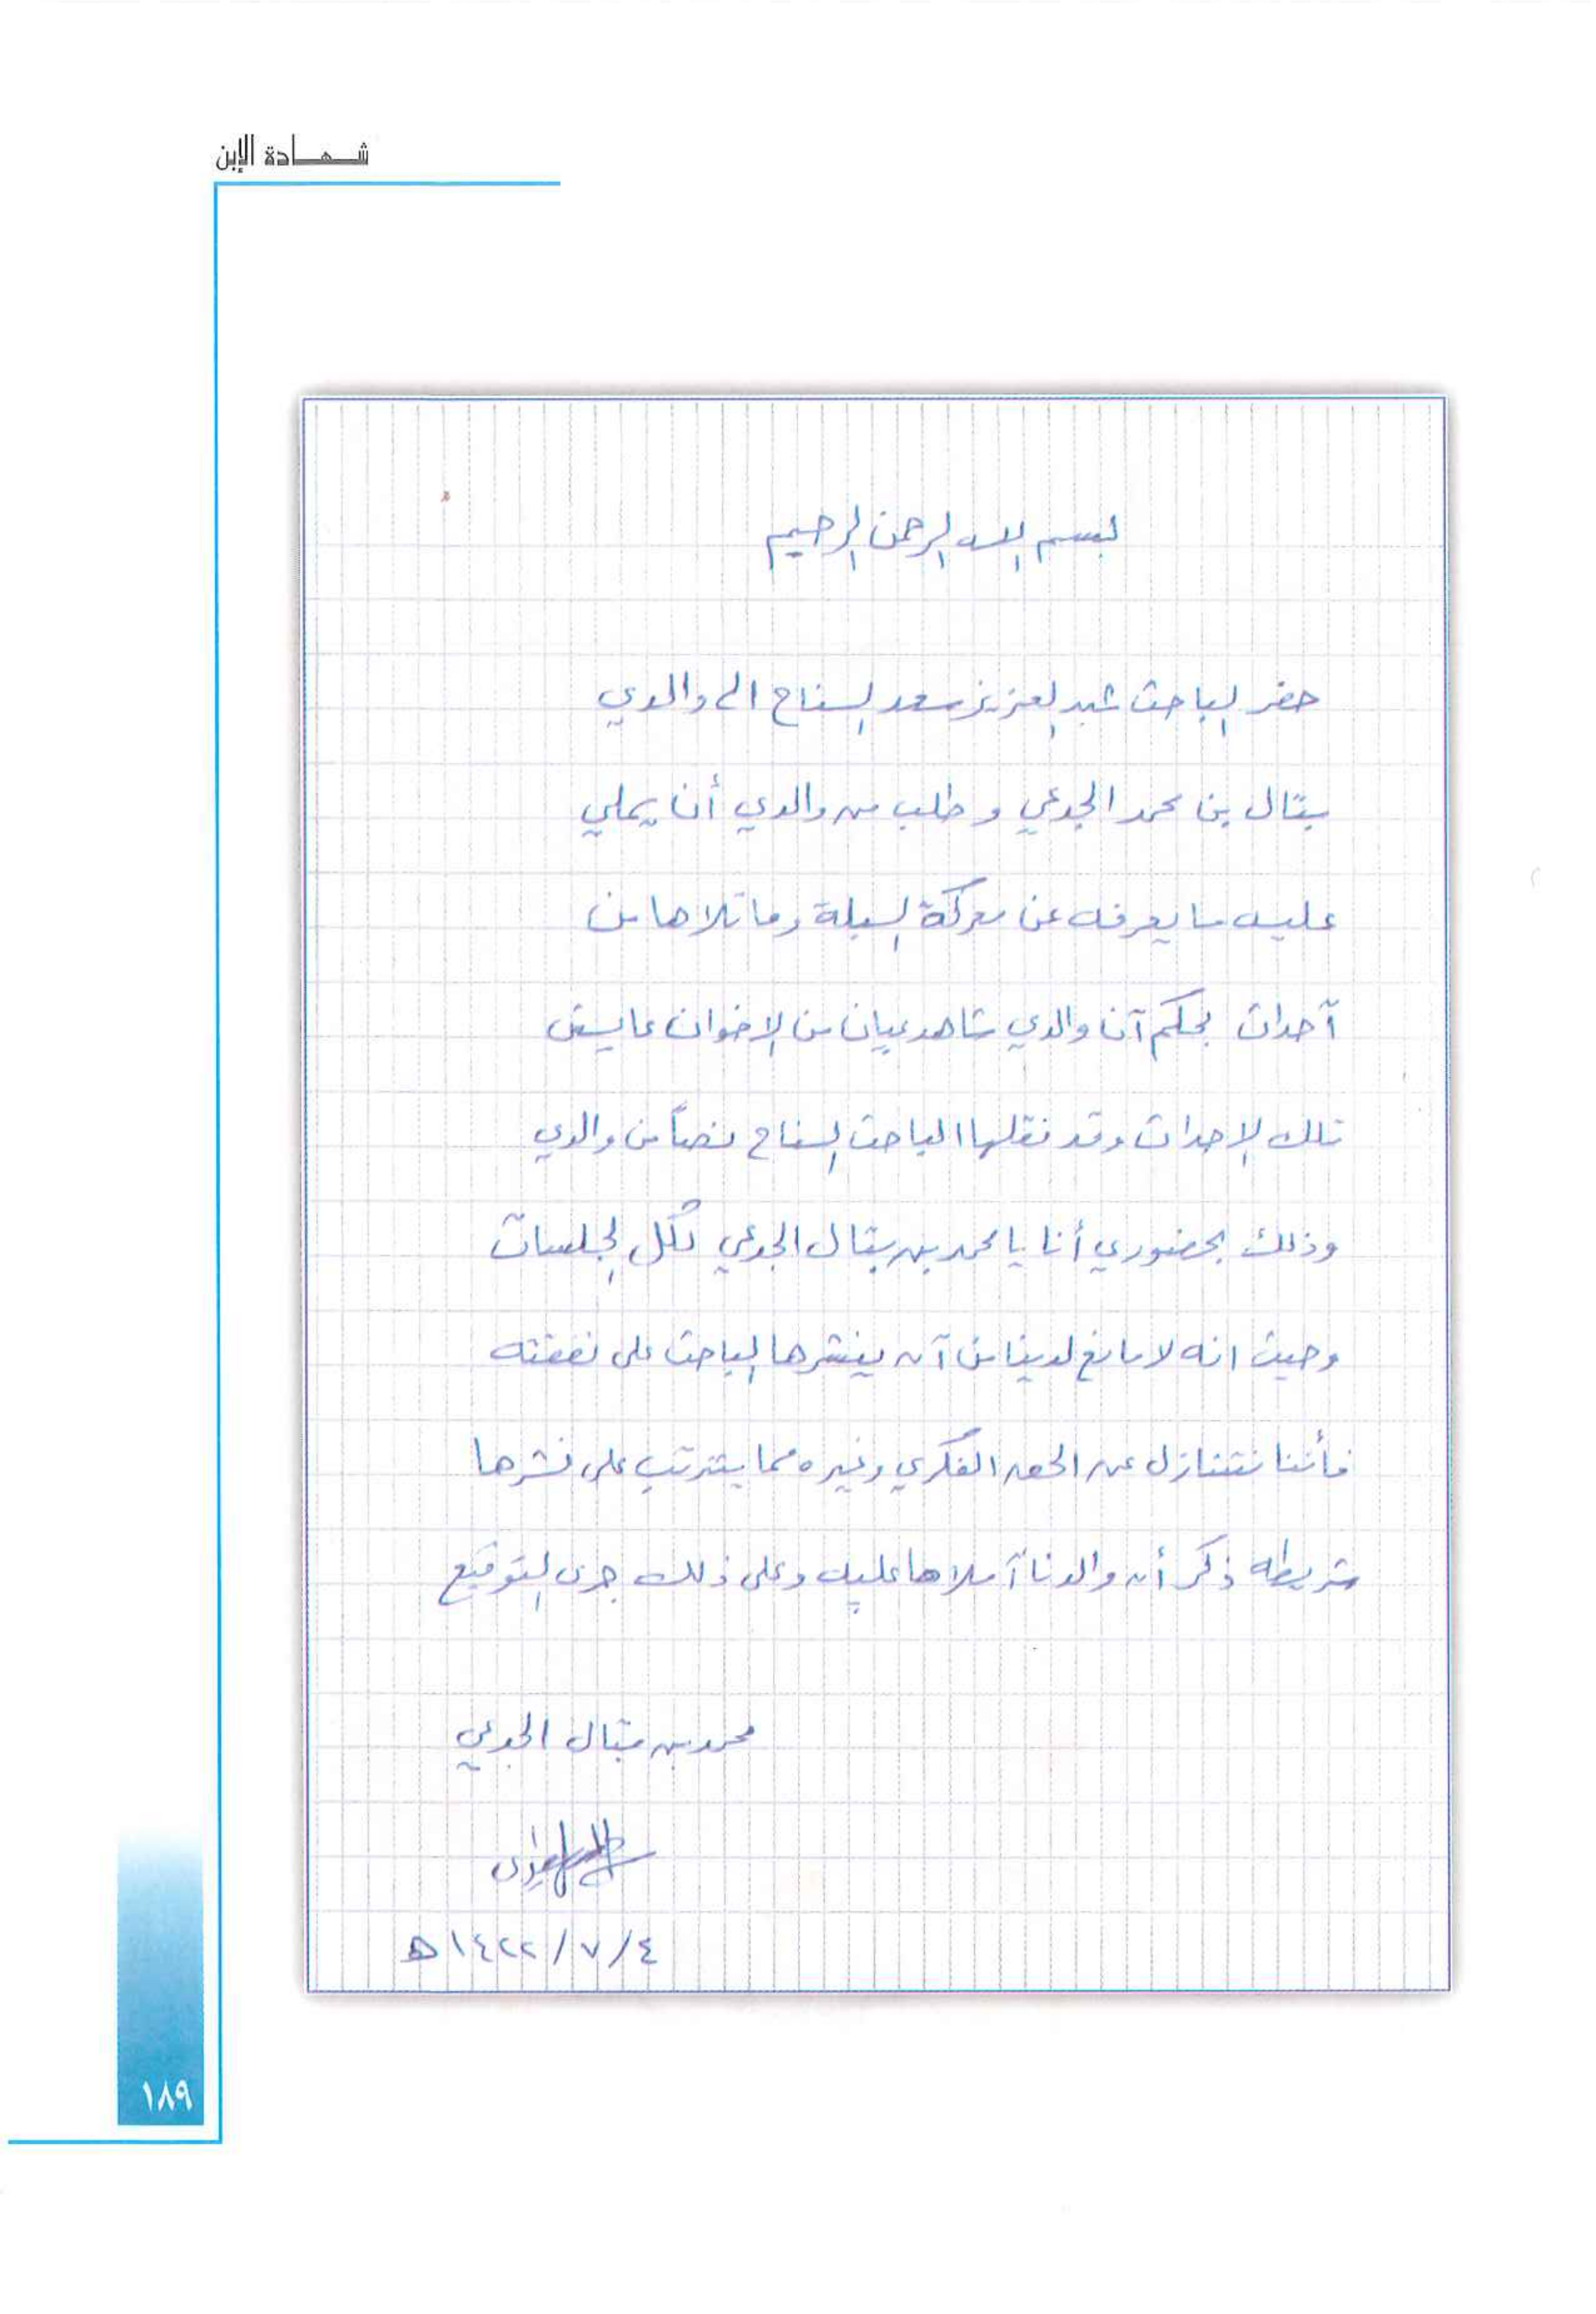 شهادة الإبن
بسم الله الرحمن الرحيم
حضر الباحث عبد العزيز سعد السناح الى والدي
بتال بن محمد الجدعي وطلب من والدي أن يملي
عليه ما يعرفه عن معركة السبلة وما تلاها من
آحداث بحكم آن والدي شاهد عيان من الإخوان عايش
تلك الاحداث وقد نقلها الباحث السناح نصاً من والدي
وذلك بحضوري أنا يا محمد بن بتال الجدعي لكل الجلسات
وحيث انه لا مانع لدينا من آن ينشرها الباحث على نفقته
فأننا نتنازل عن الحق الفكري وغيره مما يترتب على نشرها
شريطه ذكر أن والدنا آملاها عليه وعلى ذلك جرى التوقيع
محمد بن بتال الجدعي
٤/٧/١٤٢٢هـ
١٨٩